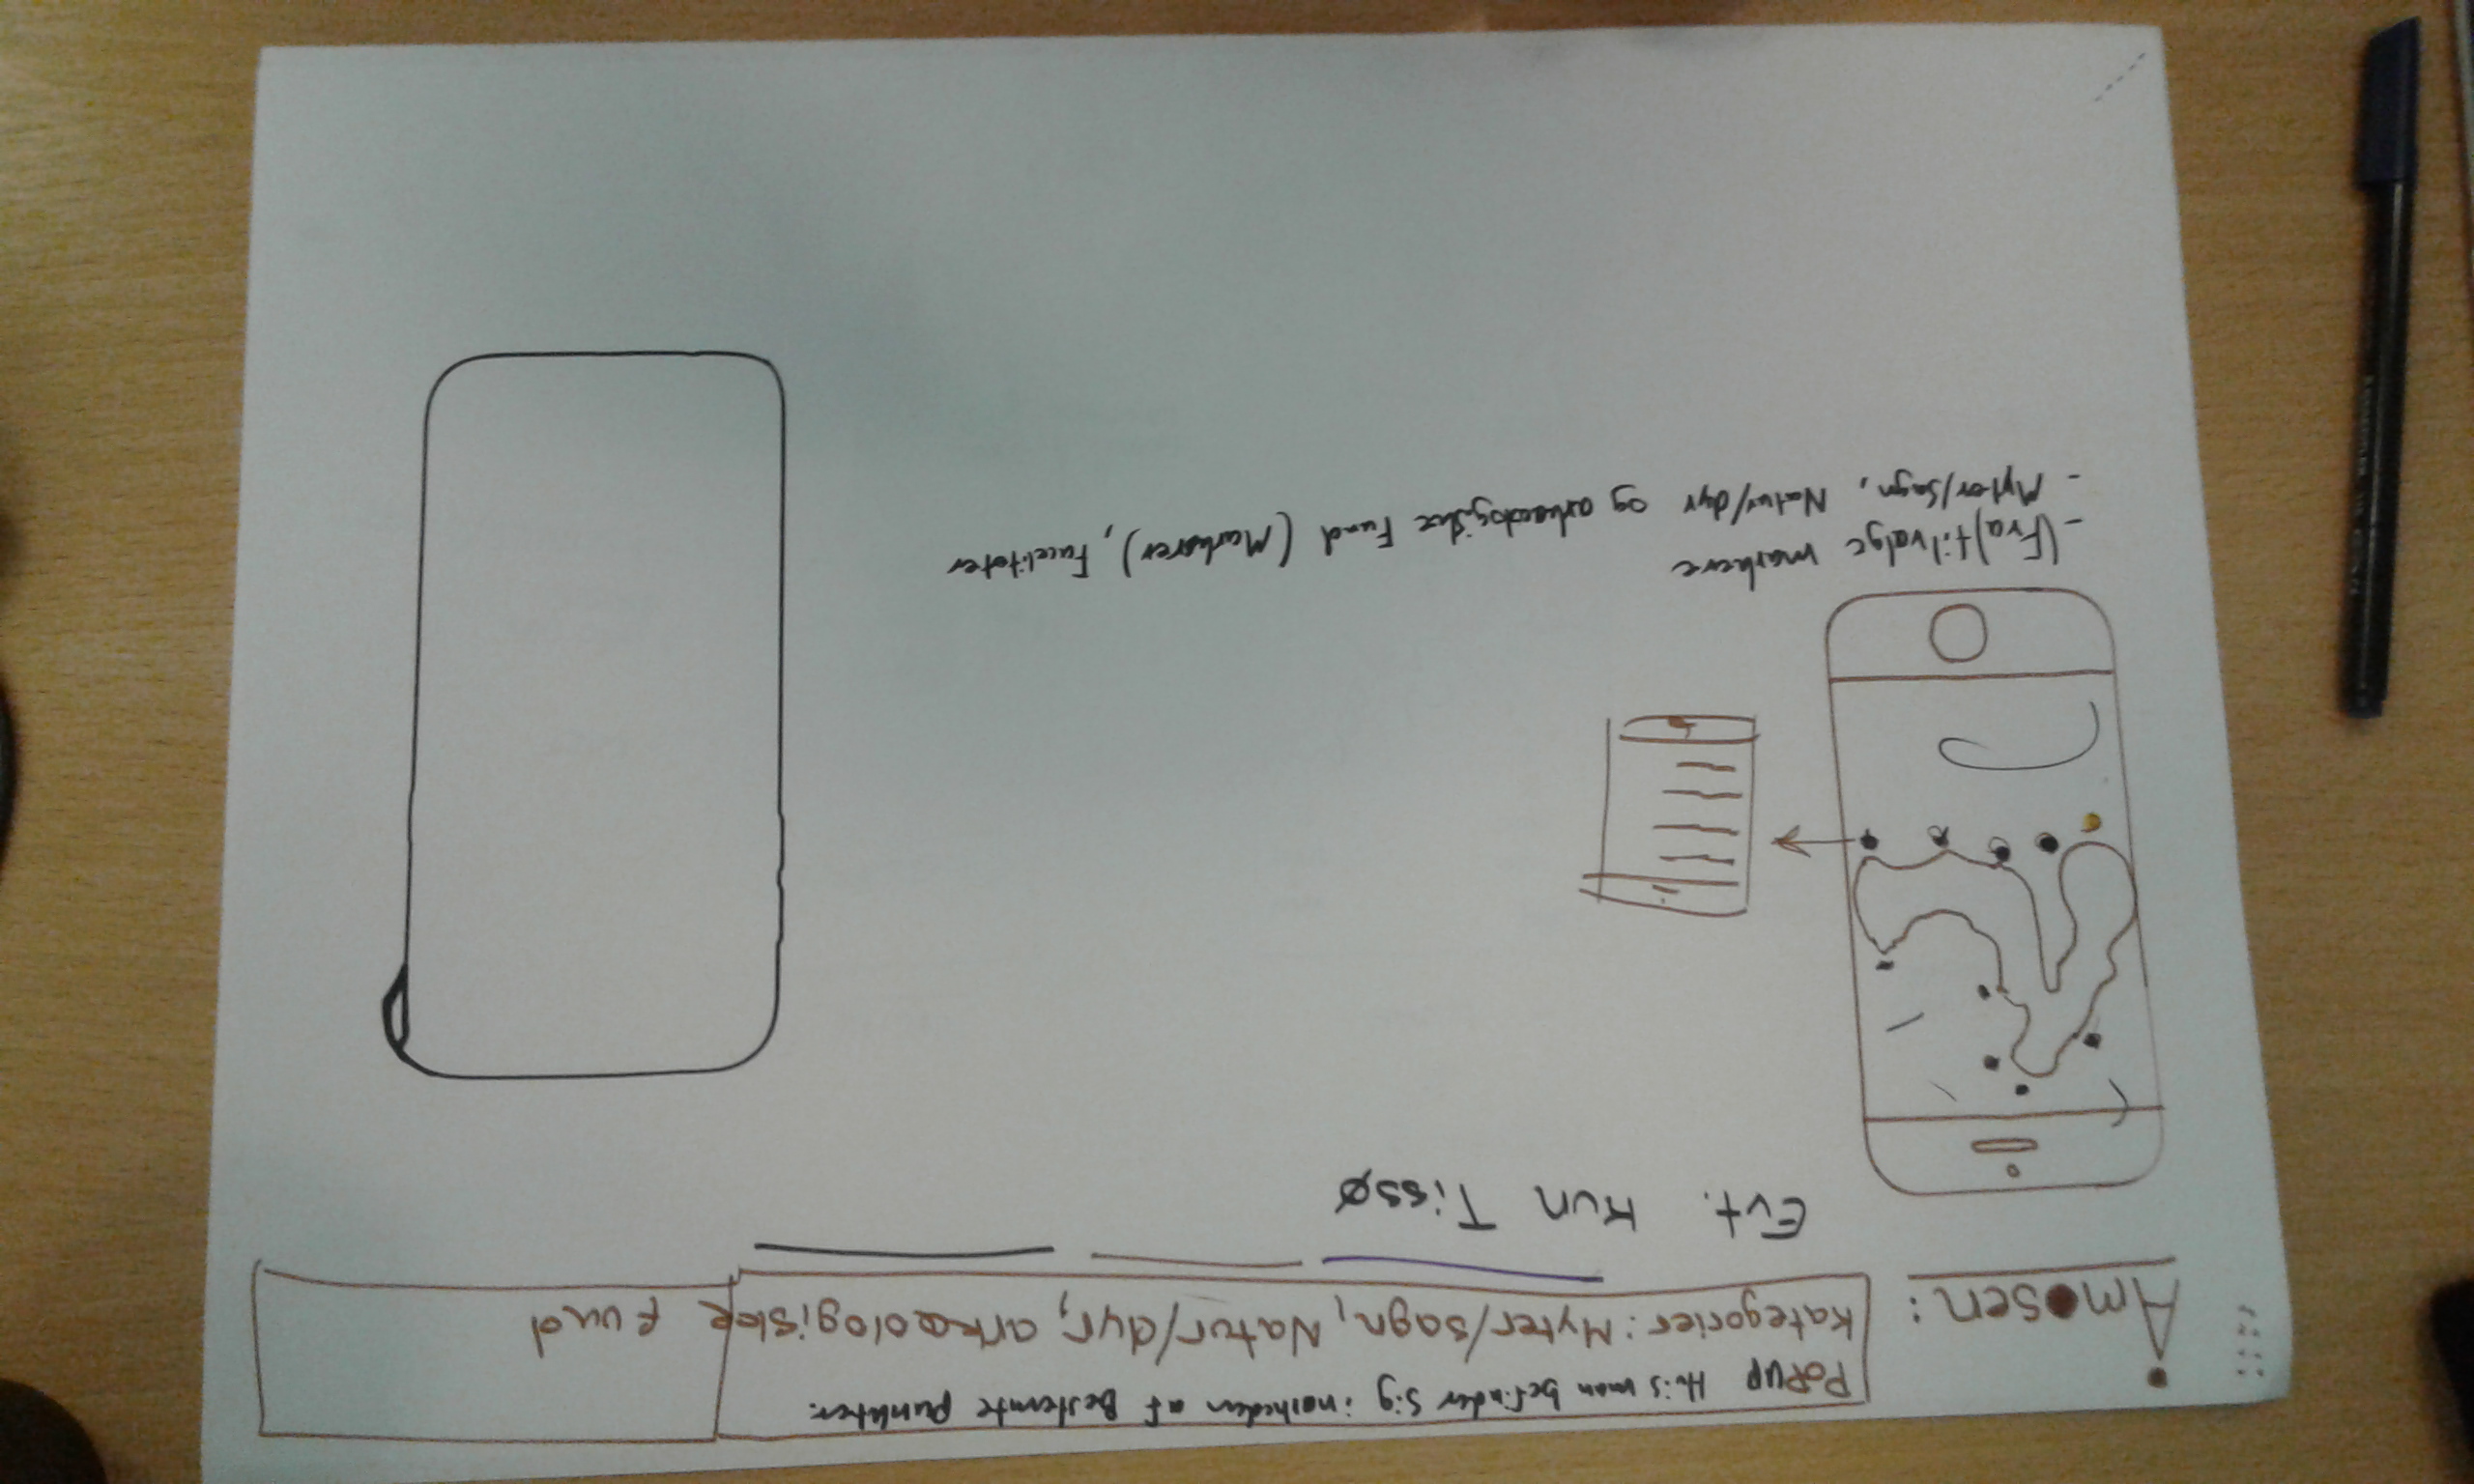 Åmosen:
POPUP Hvis man befinder sig i nærheden af Bestemte punkter.
Kategorier: Myter/sagn, Natur/dyr, arkæologiske fund
Evt. Kun Tissø
- (Fra)tilvælge markere
- Myter/Sagn, Natur/dyr og arkæologiske Fund (Markører), Faceliteter